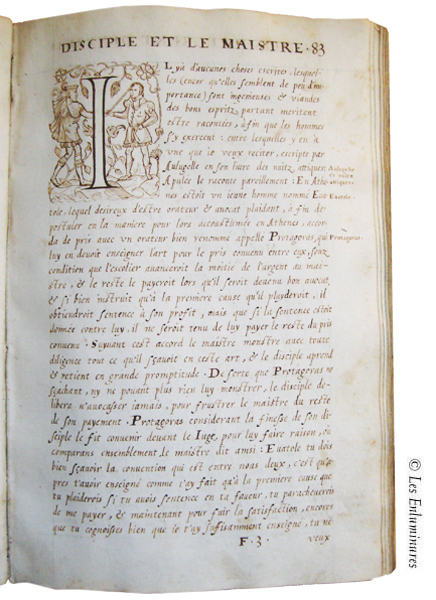 DISCIPLE ET LE MAISTRE · 83
I
L y à d'aucunes choses escrites, lesquel-
les (encor qu'elles semblent de peu d'im-
portance) sont ingenieuses & viandes
des bons espritz, partant meritent
d'estre racontées, à fin que les hommes
s'y exercent : entre lesquelles y en à
vne que ie veux reciter, escripte par
Aulugelle en son liure des nuitz attiques
Apulee le raconte pareillement : En Athe
nes estoit vn ieune homme nommé Eua
tole, lequel desireux d'estre orateur & auocat plaidant, à fin de
postuler en la maniere pour lors accoustumée en Athenes, accor-
da de pris auec vn orateur bien renommé appellé Protagoras, qui
luy en deuoit enseigner l'art pour le pris conuenu entre eux, souz
condition que l'escolier auanceroit la moitié de l'argent au mai-
stre, & le reste le payeroit lors qu'il seroit deuenu bon auocat,
& si bien instruit qu'à la première cause qu'il plaideroit, il
obtiendroit sentence à son profit, mais que si la sentence estoit
donnée contre luy, il ne seroit tenu de luy payer le reste du pris
conuenu : Suyuant cest accord le maistre monstre auec toute
diligence tout ce qu'il sçauoit en ceste art, & le disciple aprend
& retient en grande promptitude. De sorte que Protagoras ne
sçachant, ny ne pouant plus rien luy monstrer, le disciple de-
libera n'aucasser iamais, pour frustrer le maistre du reste
de son payement. Protagoras considerant la finesse de son di-
sciple le fit conuenir deuant le Iuge, pour luy faire raison, où
comparans ensemblement le maistre dit ainsi : Euatole tu dois
bien sçauoir la conuention qui est entre nous deux, c'est qu'a-
pres t'auoir enseigné comme i'ay fait qu'à la première cause que
tu plaiderois si tu auois sentence en ta faueur, tu paracheuerois
de me payer, & maintenant pour fair la satisfaction, encores
que tu cognoisses bien que ie t'ay sufisamment enseigné, tu ne
F · 3 · veux
Aulugelle
attiques
Euatole
Protagoras
© Les Enluminures